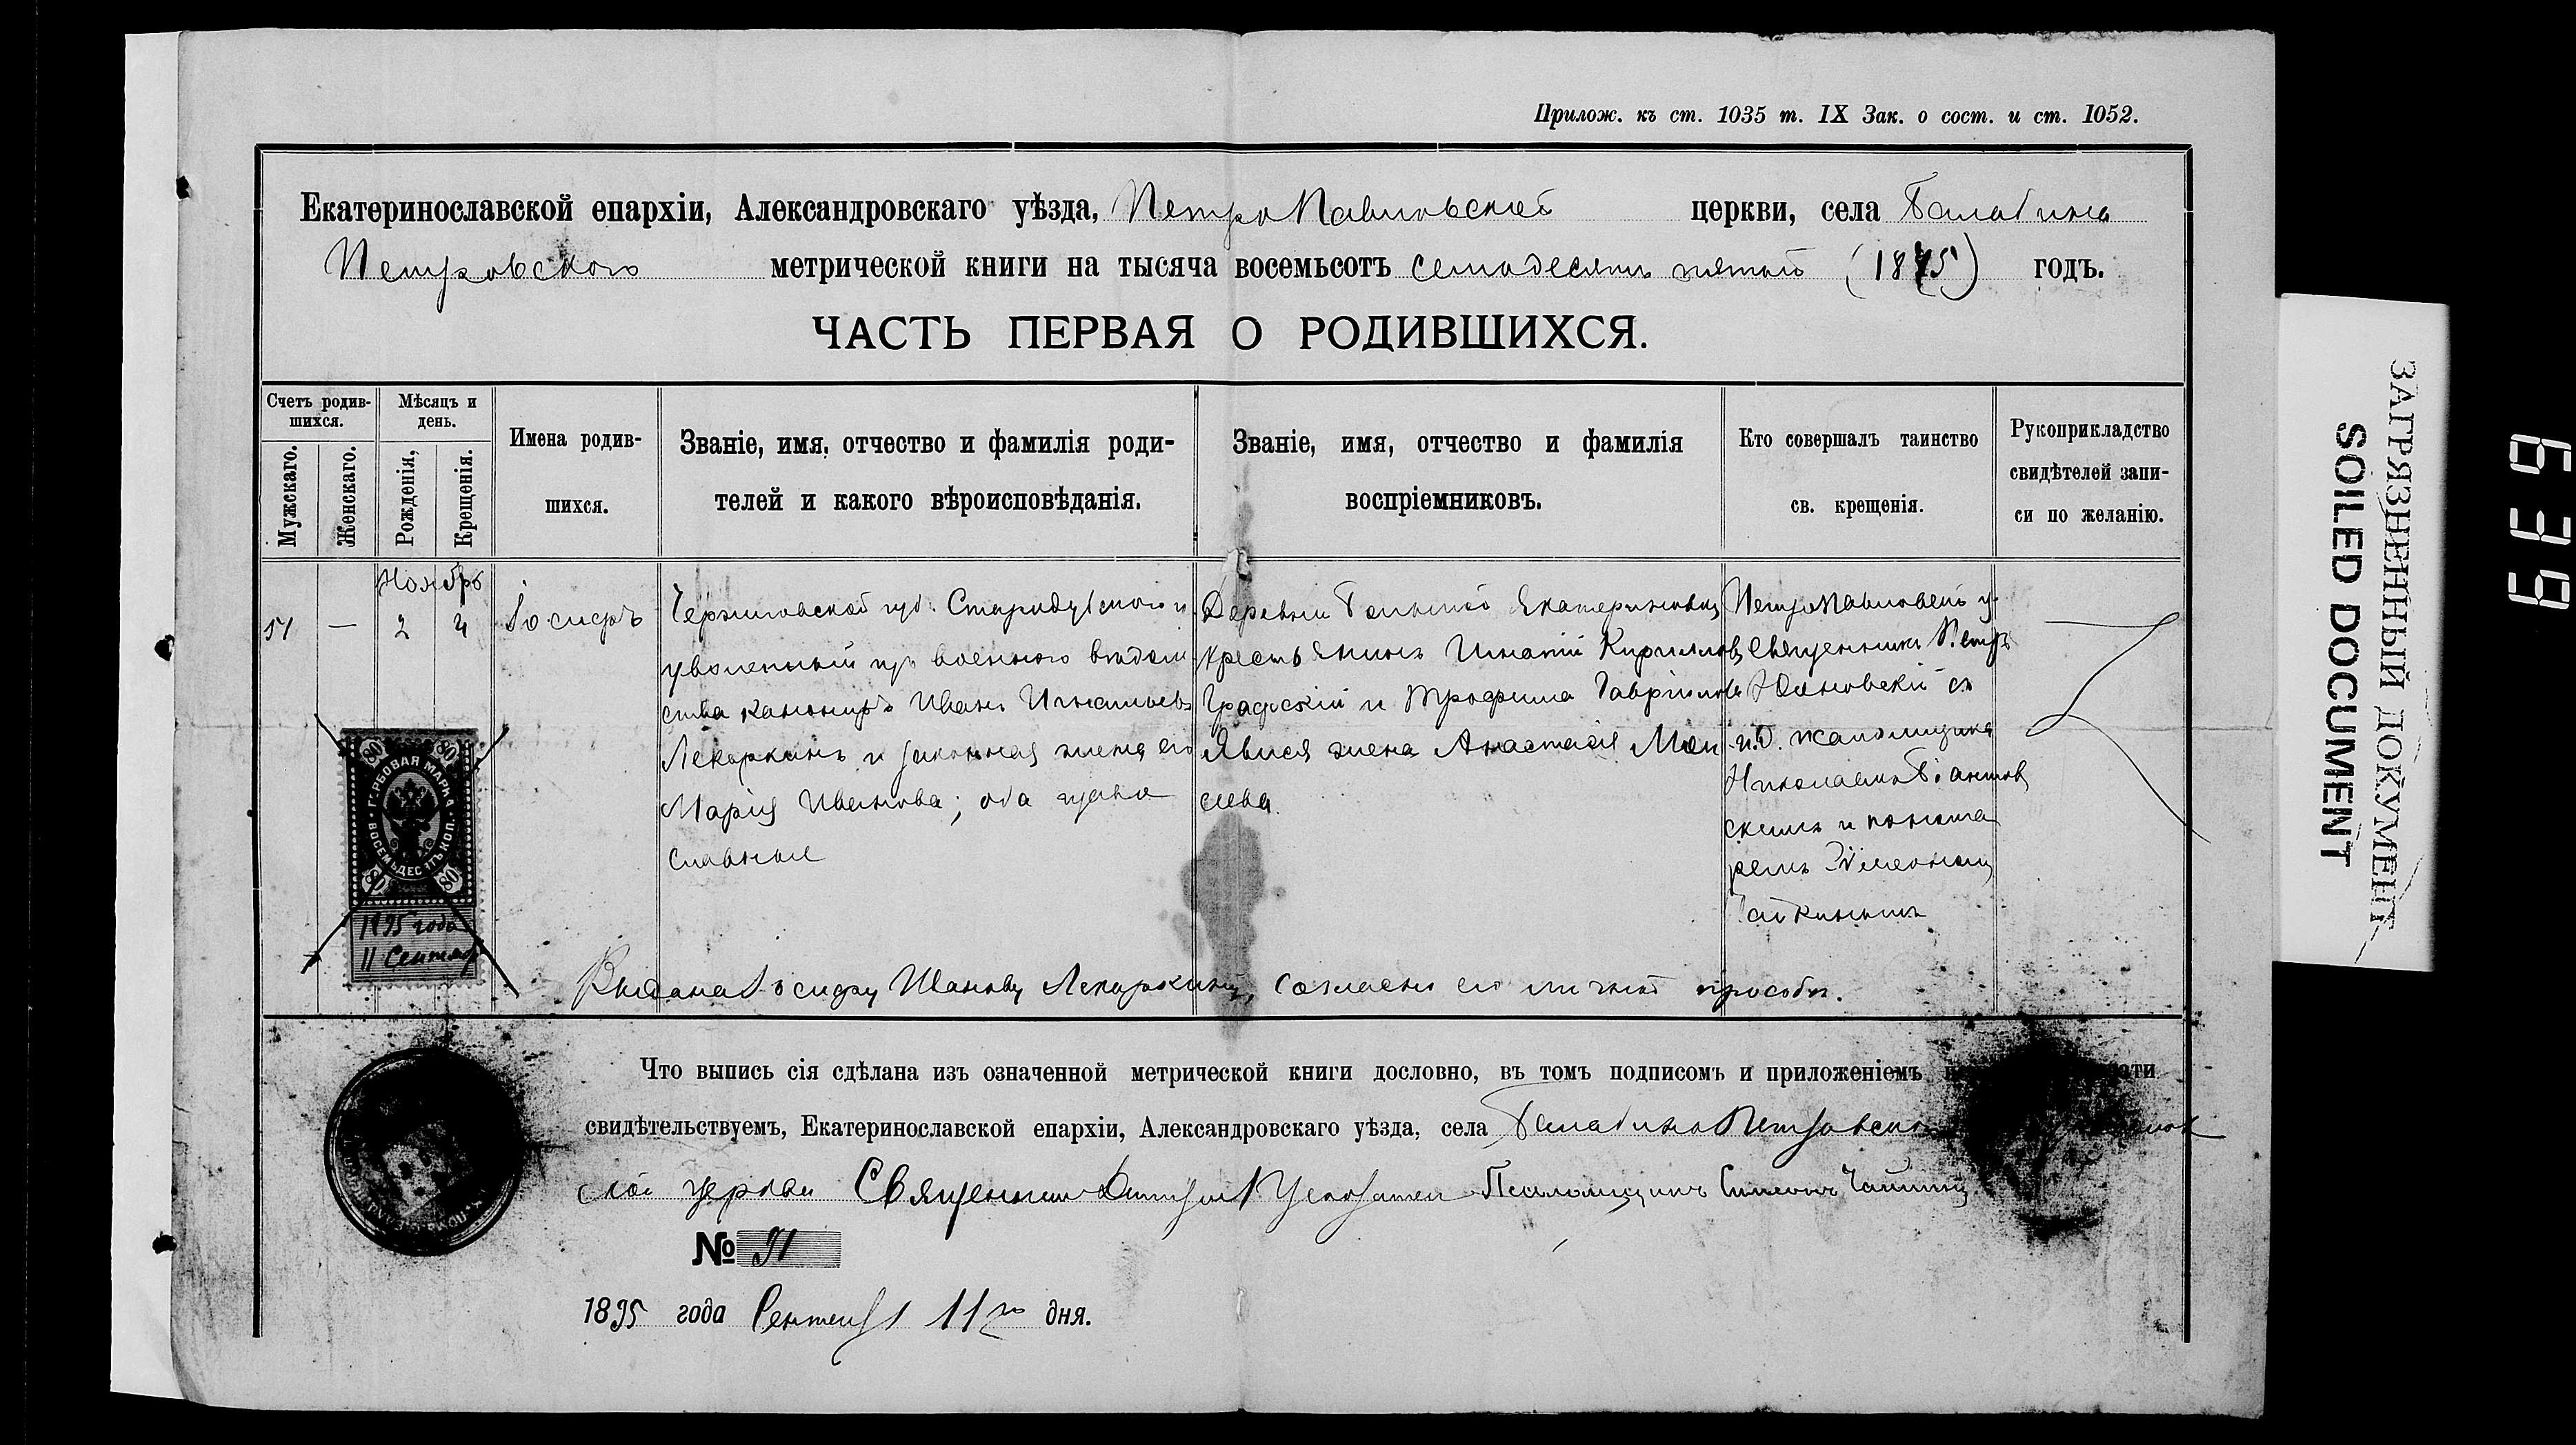 Прилож. къ ст. 1035 т. IX Зак. о сост. и ст. 1052.
Екатеринославской епархіи, Александровскаго уѣзда, ПетроПавловской церкви, села Балабино
Петровского метрической книги на тысяча восемьсотъ семьдесятъ пятый (1875) годъ.
ЧАСТЬ ПЕРВАЯ О РОДИВШИХСЯ.
Счетъ родив-
шихся.
Мужскаго.
Женскаго.
Мѣсяцъ и
день.
Рожденія,
Крещенія.
Имена родив-
шихся.
Званіе, имя, отчество и фамилія роди-
телей и какого вѣроисповѣданія.
Званіе, имя, отчество и фамилія
воспріемниковъ.
Кто совершалъ таинство
св. крещенія.
Рукоприкладство
свидѣтелей запи-
си по желанію.
Ноябрь
51
—
2
4
Іосифъ
Черниговской губ. Стародубского у.
уволенный изъ военного вѣдом
ства канониръ Иванъ Игнатьевъ
Лекаркинъ и законная жена его
Марія Иванова; оба право
славные
Деревни Екатериновки
крестьянинъ Игнатій Кирилловъ
Графскій и Трофима Гавріилова
жена Анастасія Мои
сеева
священникъ Петръ
Яновскій съ
и.д. псаломщика
Николаемъ
скимъ и понома
ремъ Симеономъ
Чайкинымъ
ГЕРБОВАЯ МАРКА
ВОСЕМЬДЕСЯТЪ КОП.
80 80
80 80
1895 года
11 Сентяб
Выдана Іосифу Иванову Лекаркину, согласно его личной просьбы.
Что выпись сія сдѣлана изъ означенной метрической книги дословно, въ томъ подписомъ и приложеніемъ
свидѣтельствуемъ, Екатеринославской епархіи, Александровскаго уѣзда, села Балабино Петровского
ской церкви Священникъ Димитрій Псаломщикъ Симеонъ Чайкинъ
№ 91
1895 года Сентября 11го дня.
ЗАГРЯЗНЕННЫЙ ДОКУМЕНТ
SOILED DOCUMENT
639